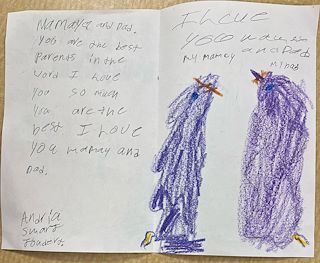 Mamaya and Dad.
you are the best
Parents in the
word I Love
you so much
you are the
best I Love
you mamay and
Dad.
Andria
Smart
I Love
you
and Dad
my mamay
my Dad